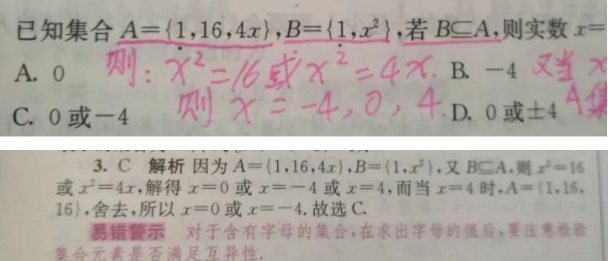 已知集合 A={1,16,4x},B={1,x²},若 B⊆A,则实数 x=
A. 0 则:x²=16或x²=4x. B. -4 又当 x
C. 0 或-4 则 x=-4,0,4. D. 0 或±4 A集
3. C 解析 因为 A={1,16,4x},B={1,x²},又 B⊆A,则 x²=16
或 x²=4x,解得 x=0 或 x=-4 或 x=4,而当 x=4 时,A={1,16,
16},舍去,所以 x=0 或 x=-4.故选 C.
易错警示 对于含有字母的集合,在求出字母的值后,要注意检验
集合元素是否满足互异性.